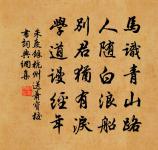 馬識青山路
人隨白浪船
別君猶有淚
學道謾經年
朱慶餘杭州送蕭寶校
書詞典網集